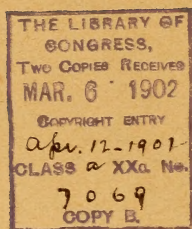 THE LIBRARY OF
CONGRESS,
TWO COPIES RECEIVED
MAR. 6 1902
COPYRIGHT ENTRY
Apr. 12-1901
CLASS a XXc. No.
7069
COPY B.